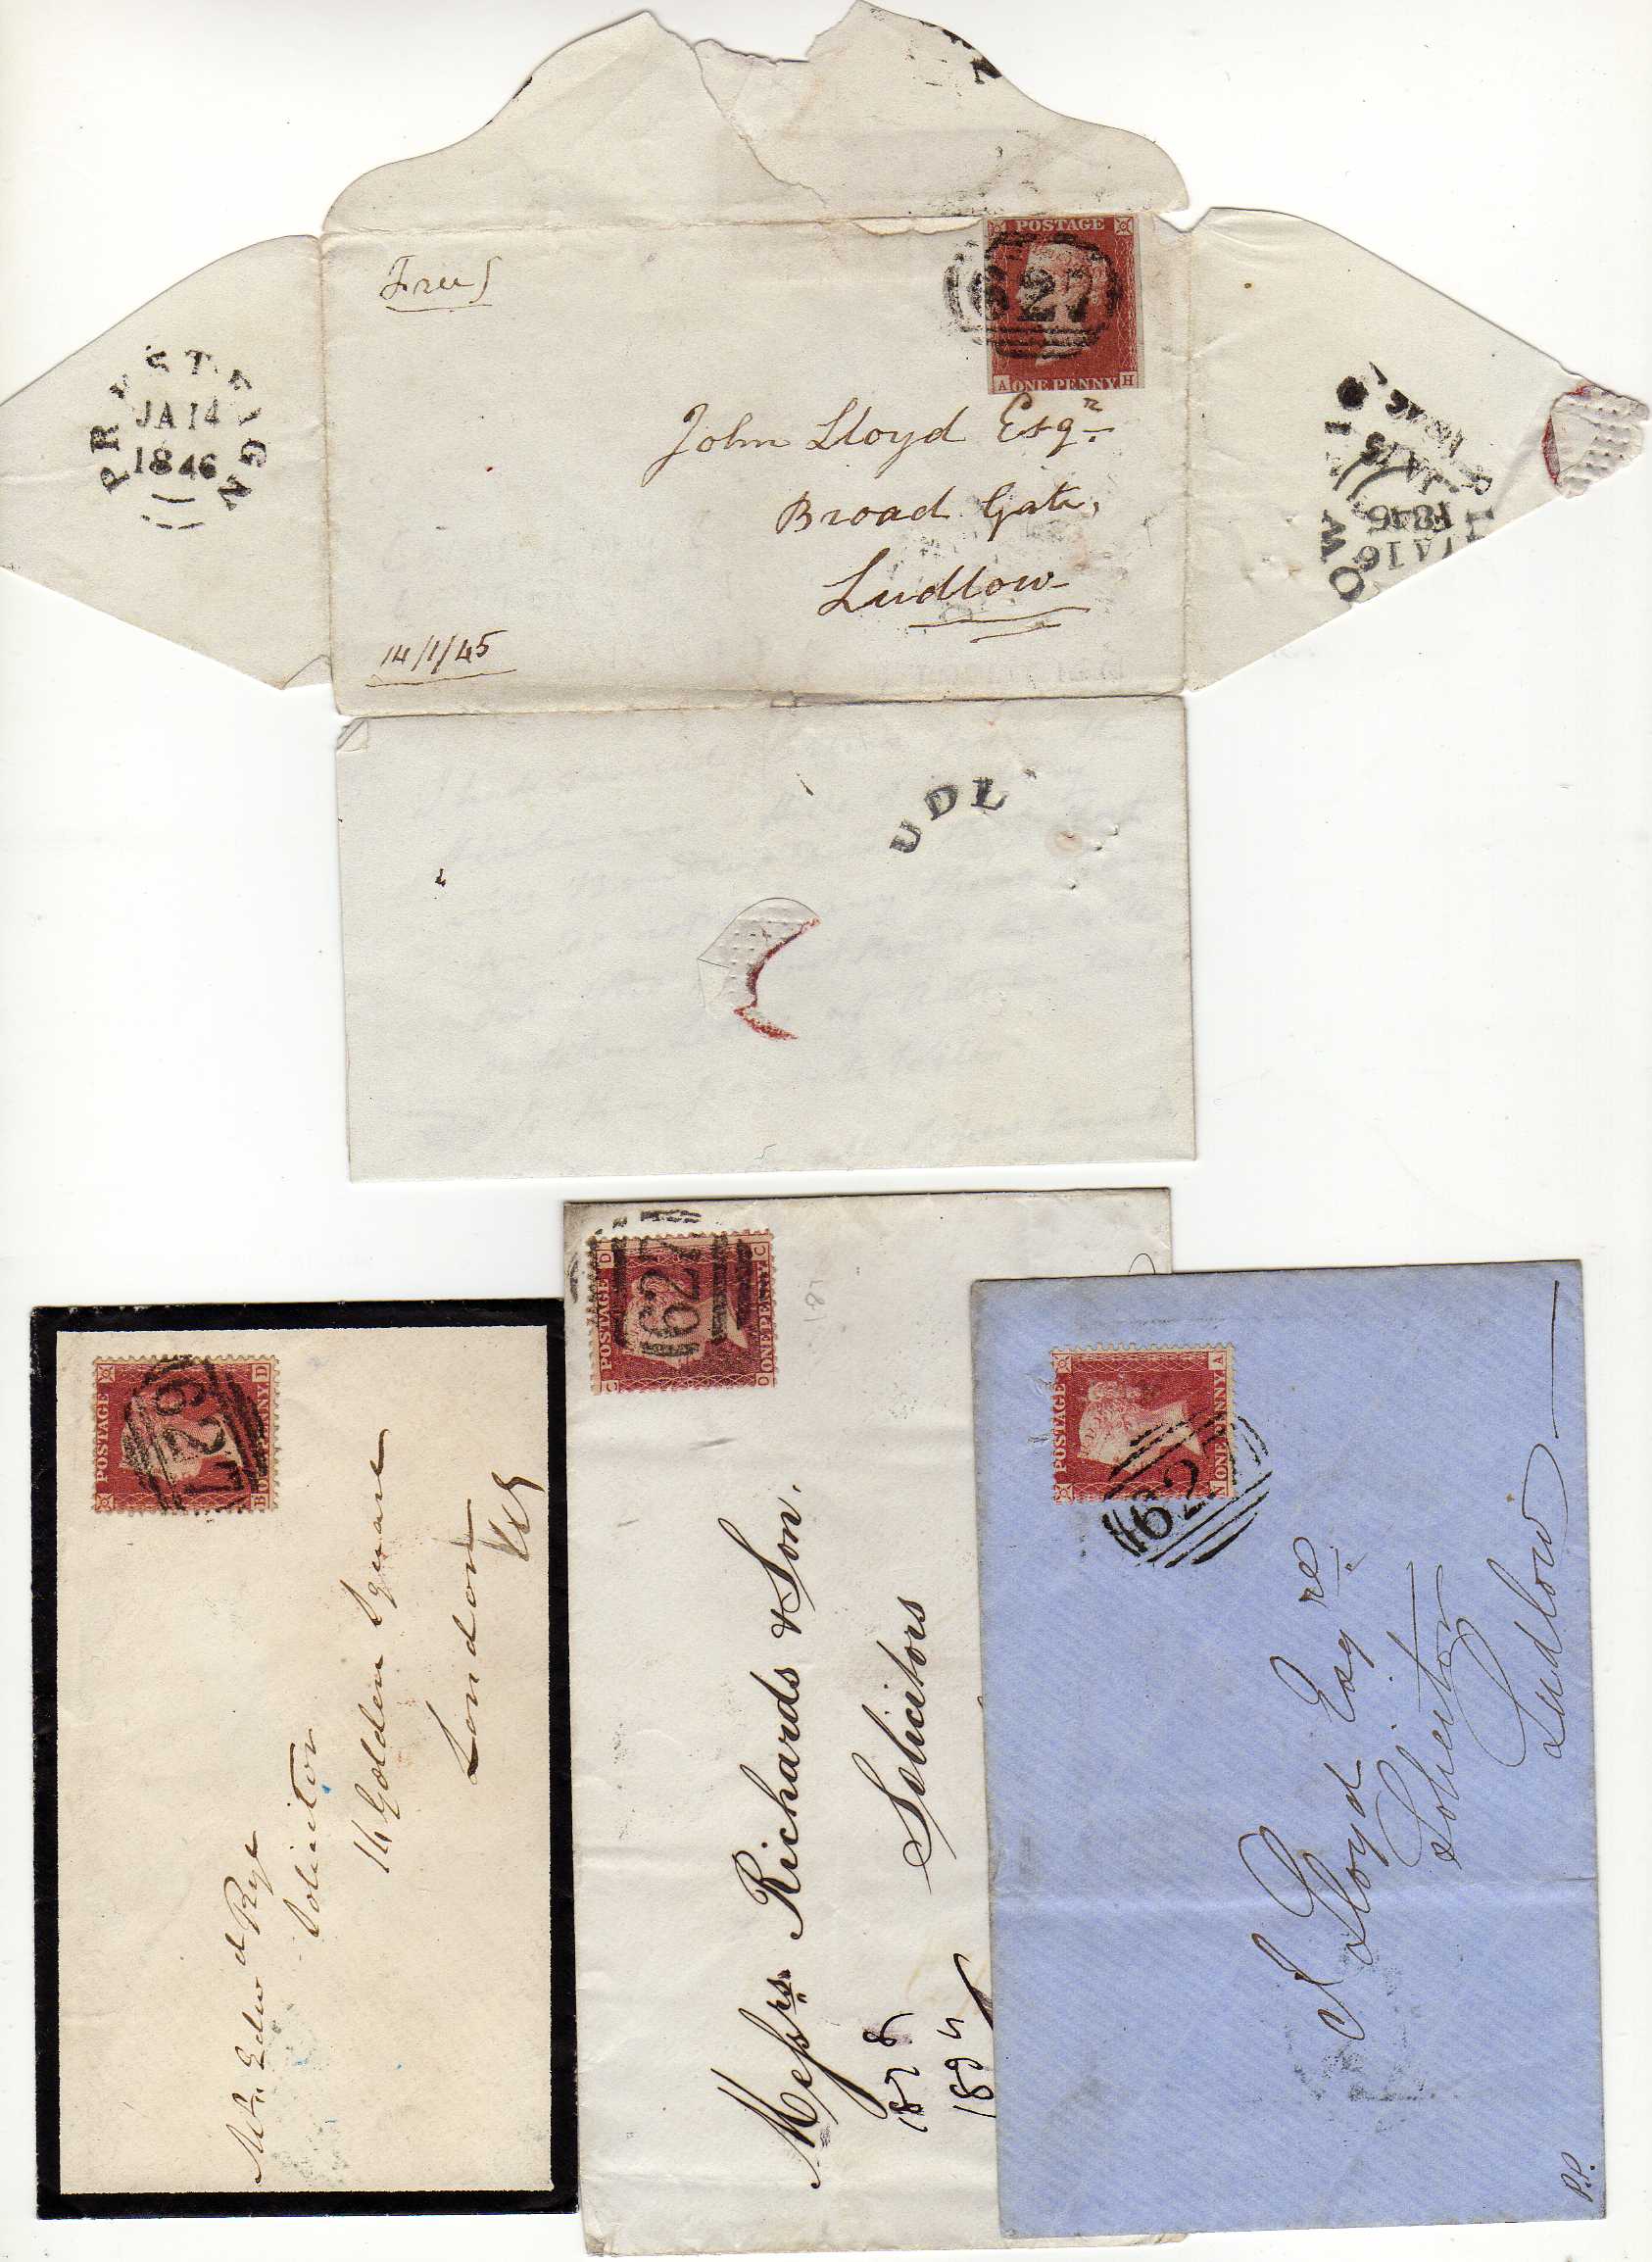 Free
POSTAGE
627
A ONE PENNY H
PRESTEIGN
JA 14
1846
John Lloyd Esqr.
Broad Gate,
Ludlow
14/1/45
UDL
POSTAGE
627
B ONE PENNY D
Mr. Edwd Rye
Solicitor
14 Golden Square
London
D
C POSTAGE
627
C
D ONE PENNY
Messrs. Richards & Son.
Solicitors
1828
POSTAGE
62
N ONE PENNY A
J Lloyd Esqre.
Solicitor
Ludlow
P.P.